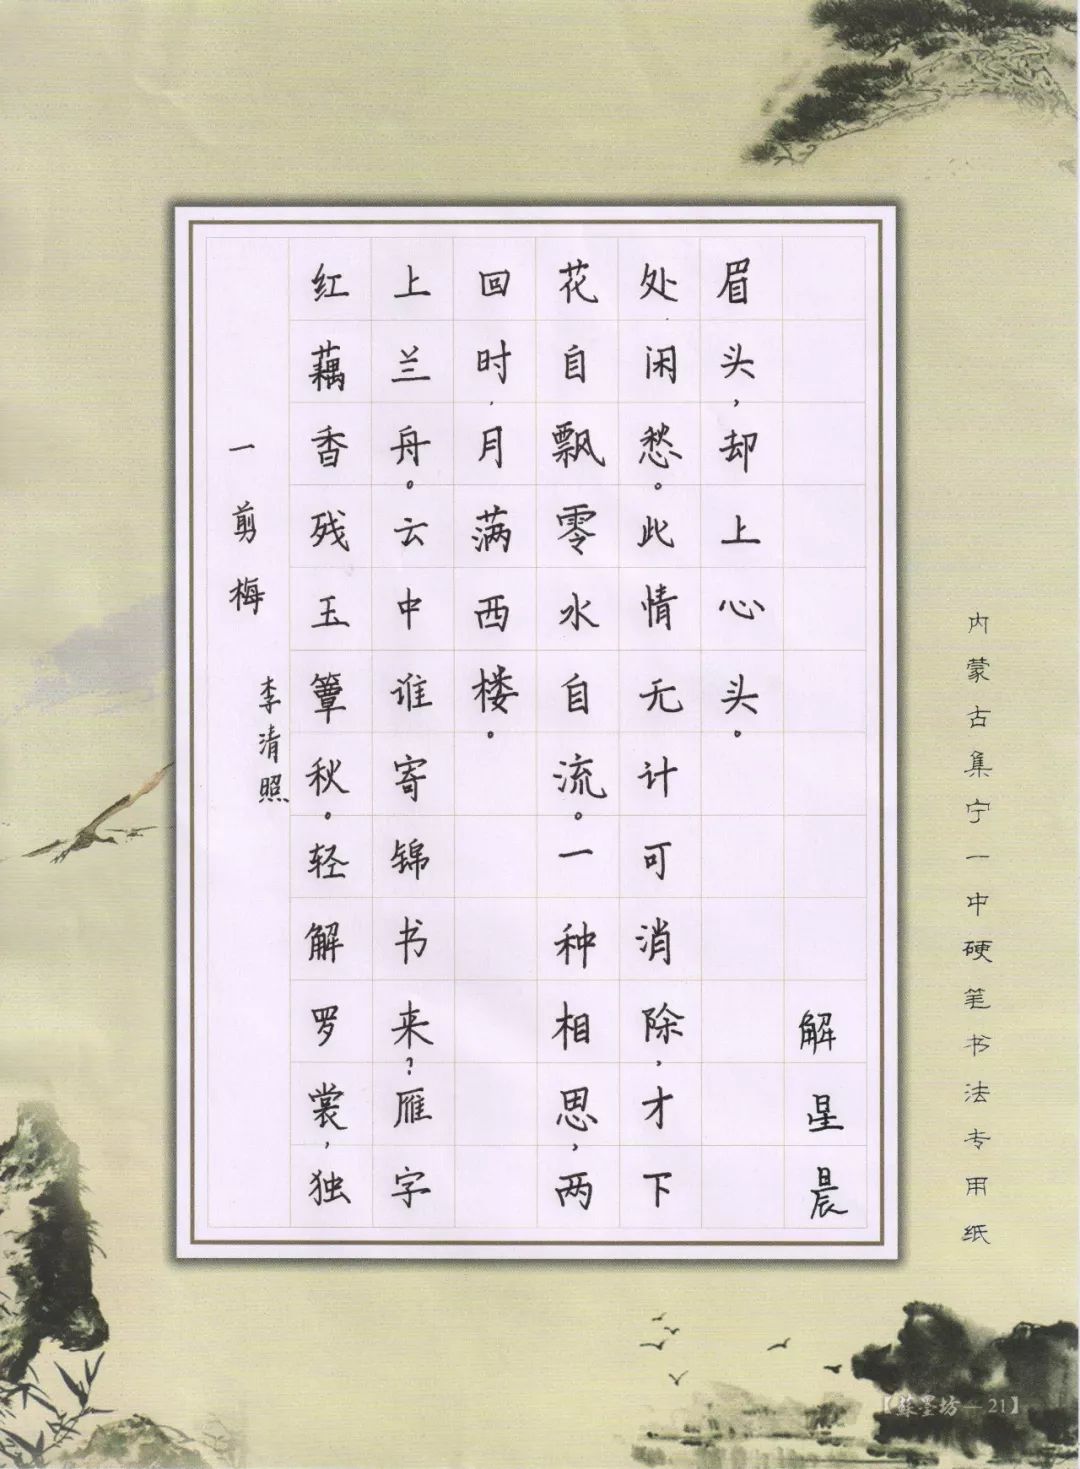 一剪梅
李清照
红藕香残玉簟秋。轻解罗裳,独
上兰舟。云中谁寄锦书来?雁字
回时,月满西楼。
花自飘零水自流。一种相思,两
处闲愁。此情无计可消除,才下
眉头,却上心头。
解星晨
内蒙古集宁一中硬笔书法专用纸
【蘇墨坊—21】